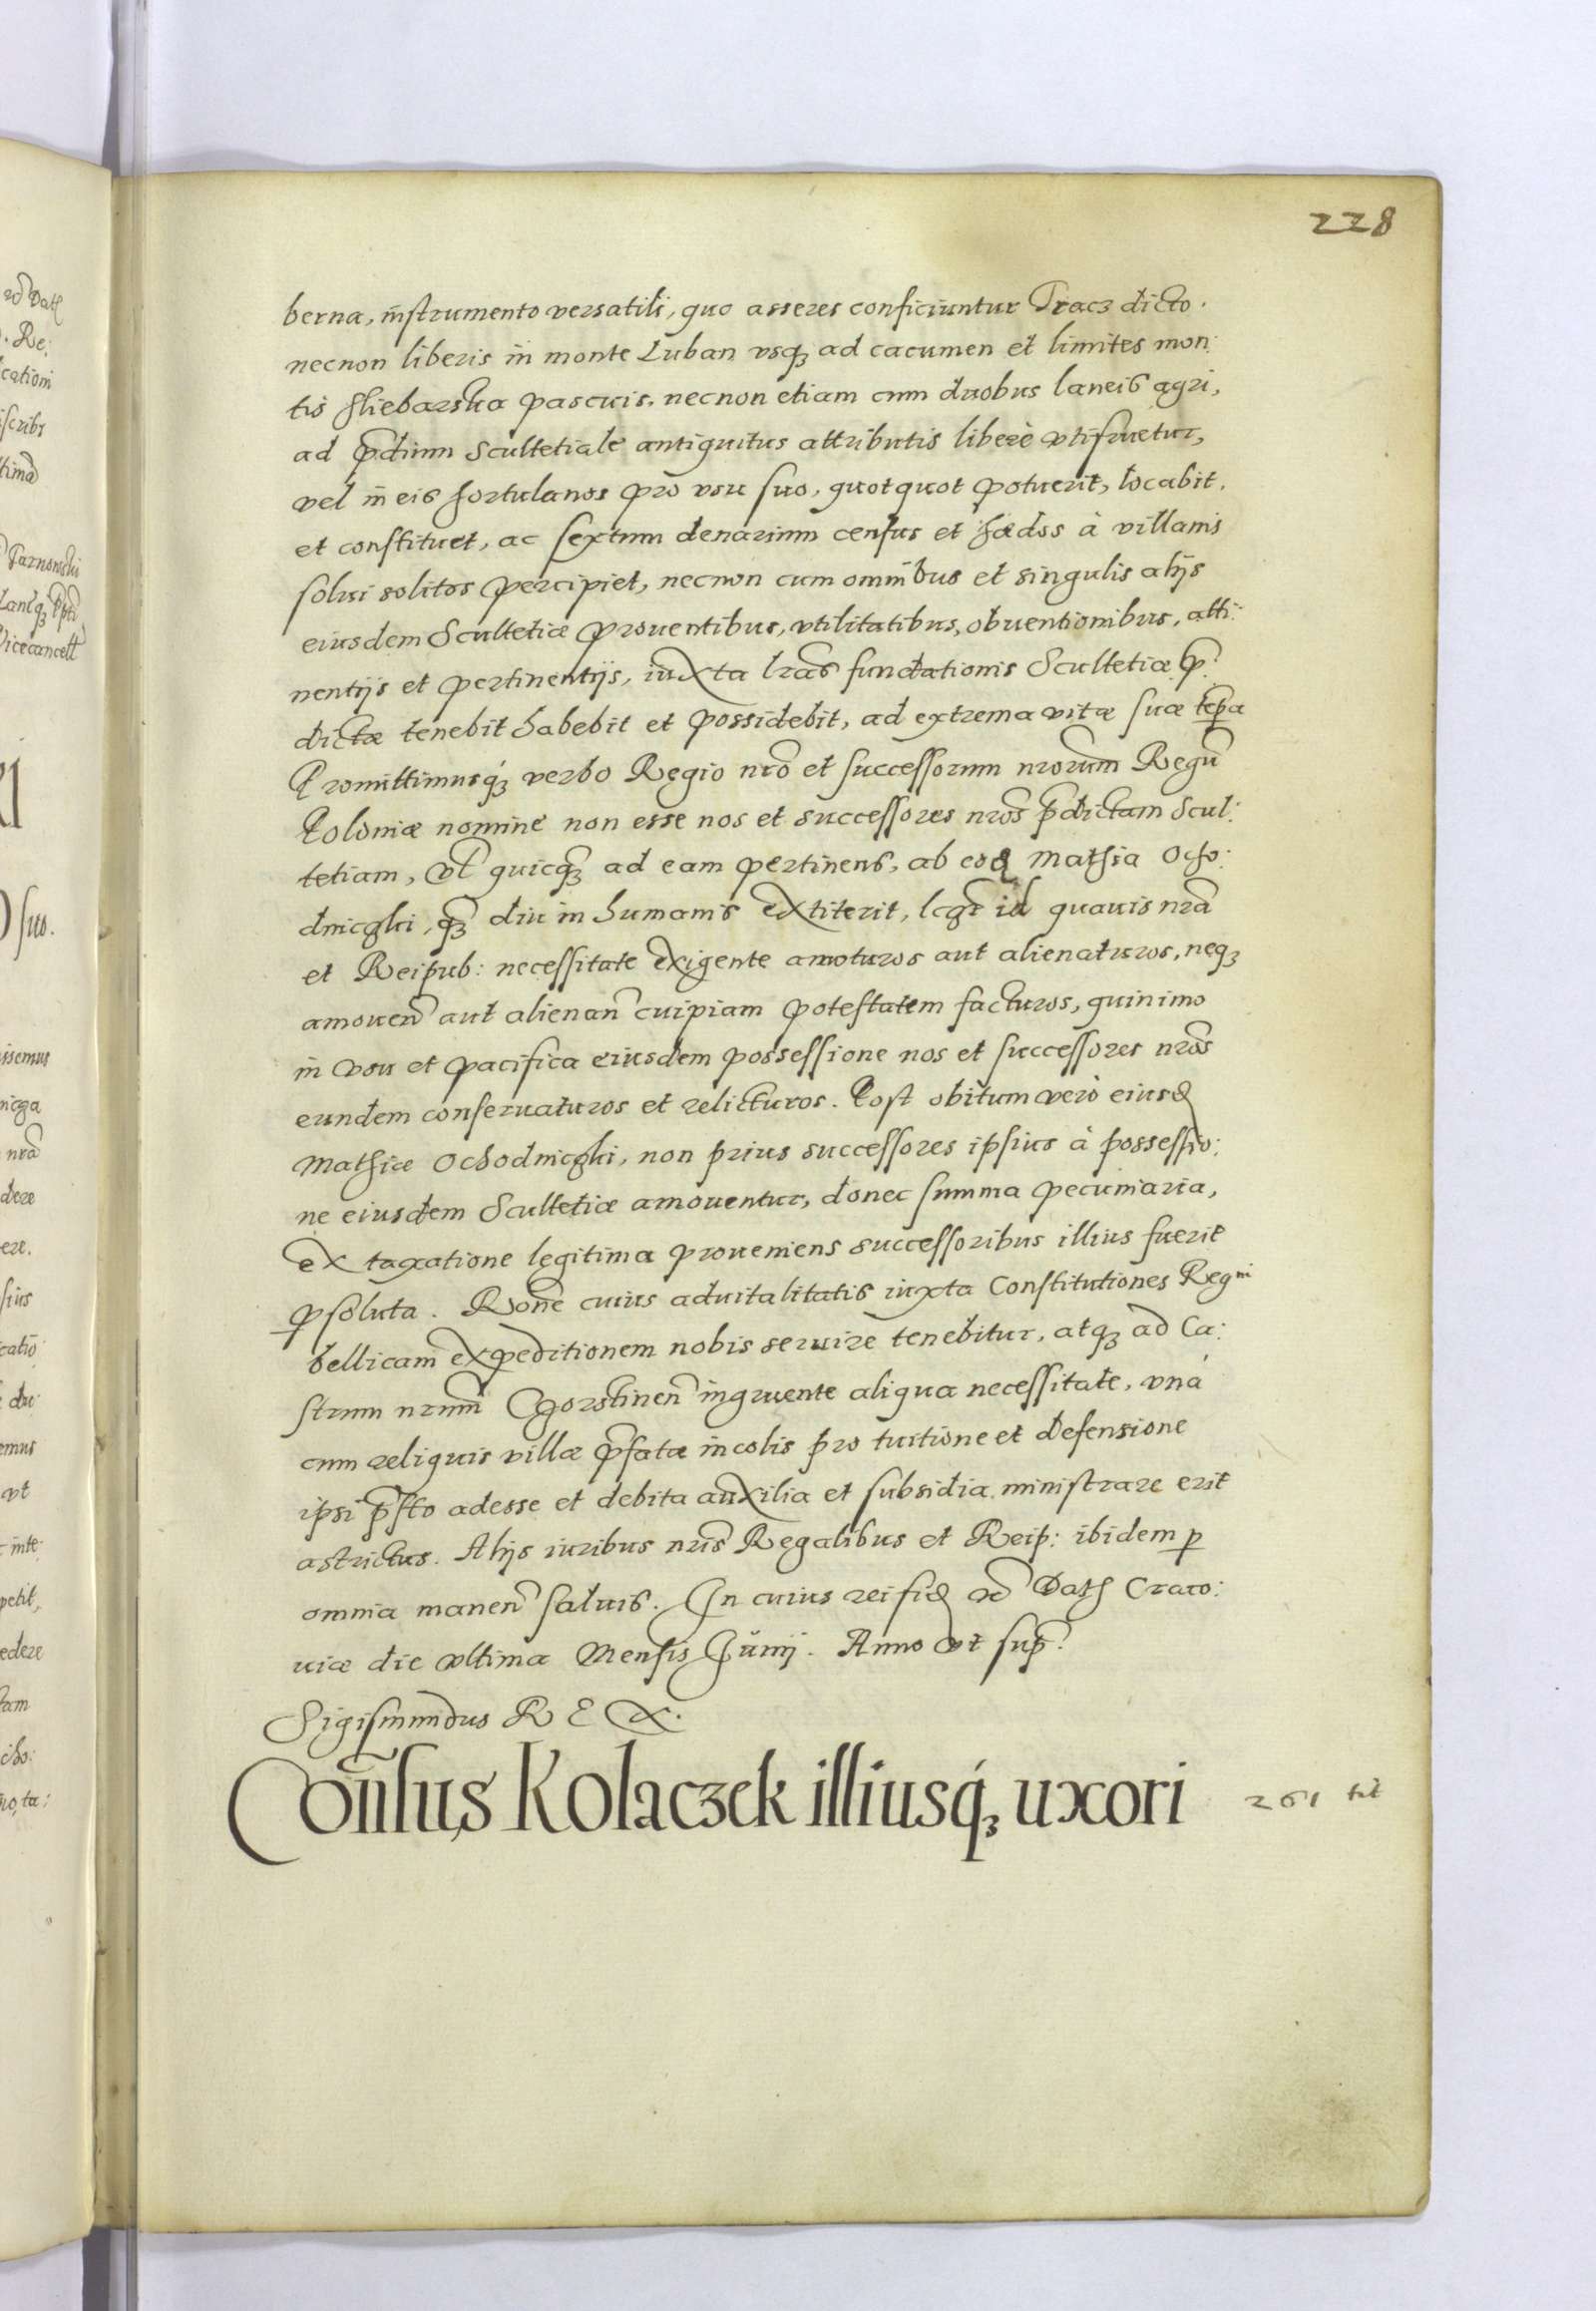 228
berna, instrumento versatili, quo asseres conficiuntur Tracz dicto.
necnon liberis in monte Luban vsq3 ad cacumen et limites mon:
tis pascuis. necnon etiam cum duobus laneis agri,
ad p̄dium Scultetiale antiquitus attributis liberè vtifruetur,
vel in eis hortulanos pro vsu suo, quotquot potuerit, locabit,
et constituet, ac sextum denarium census et hædos à villanis
solui solitos percipiet, necnon cum omnibus et singulis alijs
eiusdem Scultetiæ prouentibus, vtilitatibus, obuentionibus, atti:
nentijs et pertinentijs, iuxta lr̄as fundationis Scultetiæ p̄:
dictæ tenebit habebit et possidebit, ad extrema vitæ suæ tēpa
Promittimusq́3 verbo Regio nr̄o et successorum nrorum Regū
Poloniæ nomine non esse nos et successores nr̄os p̄dictam Scul:
tetiam, vl̄ quicq̄3 ad eam pertinens, ab eod Mathia Ocho:
dniczki, q̄3 diu in humanis extiterit, id quauis nr̄a
et Reipub: necessitate exigente amoturos aut alienaturos, neq3
amouen̄ aut alienan̄ cuipiam potestatem facturos, quinimo
in vsu et pacifica eiusdem possessione nos et successores nr̄os
eundem conseruaturos et relicturos. Post obitum verò eiusd
Mathiæ Ochodniczki, non prius successores ipsius à possessio:
ne eiusdem Scultetiæ amouentur, donec summa pecuniaria,
ex taxatione legitima proueniens successoribus illius fuerit
psoluta. Rōne cuius aduitalitatis iuxta Constitutiones Regni
bellicam expeditionem nobis seruire tenebitur, atq3 ad Ca:
strum nrūm Czorstinen̄ ingruente aliqua necessitate, vná
cum reliquis villæ p̄fatæ incolis pro tuitione et defensione
ipsi p̄sto adesse et debita auxilia et subsidia ministrare erit
astrictus. Alijs iuribus nr̄is Regalibus et Reip: ibidem p
omnia manen̄ saluis. In cuius rei fid rc̄ Dat Craco:
uiæ die vltima Mensis Junij. Anno vt sup̄:
Sigismundus REX.
Con̄sus Kolaczek illiusq́3 uxori
261